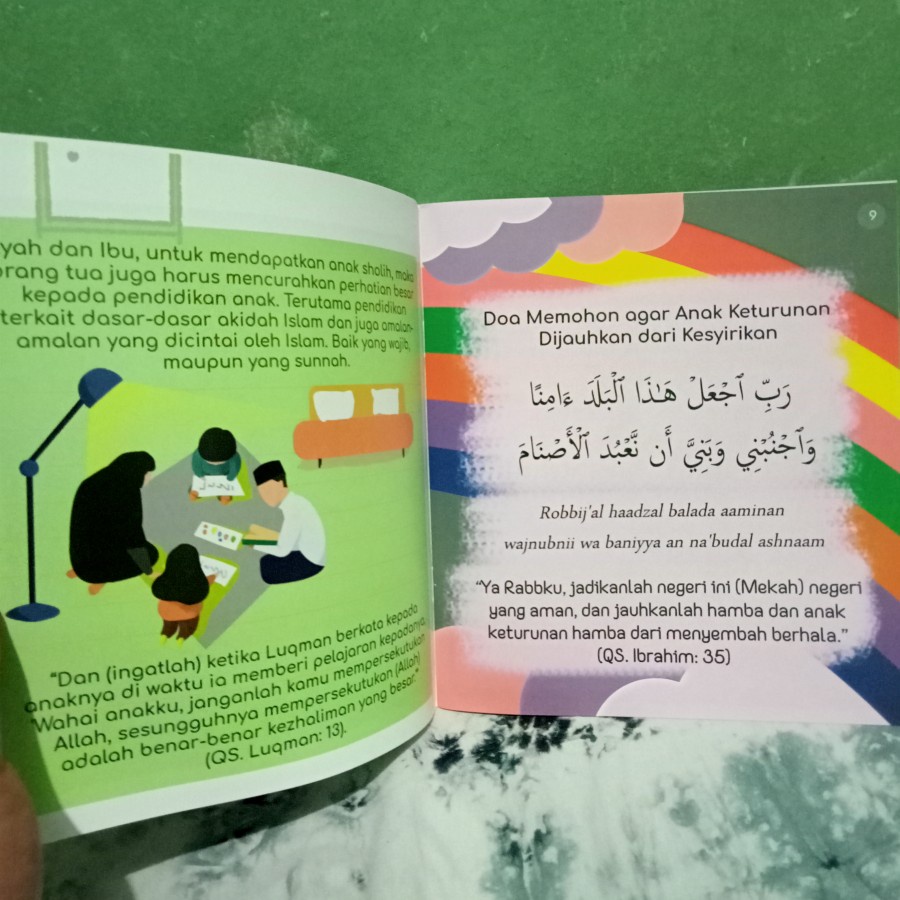 yah dan Ibu, untuk mendapatkan anak sholih, maka
orang tua juga harus mencurahkan perhatian besar
kepada pendidikan anak. Terutama pendidikan
terkait dasar-dasar akidah Islam dan juga amalan-
amalan yang dicintai oleh Islam. Baik yang wajib,
maupun yang sunnah.
"Dan (ingatlah) ketika Luqman berkata kepada
anaknya di waktu ia memberi pelajaran kepadanya,
"Wahai anakku, janganlah kamu mempersekutukan
Allah, sesungguhnya mempersekutukan (Allah)
adalah benar-benar kezhaliman yang besar."
(QS. Luqman: 13).
9
Doa Memohon agar Anak Keturunan
Dijauhkan dari Kesyirikan
رَبِّ ٱجْعَلْ هَـٰذَا ٱلْبَلَدَ ءَامِنًا
وَٱجْنُبْنِي وَبَنِيَّ أَن نَّعْبُدَ ٱلْأَصْنَامَ
Robbij'al haadzal balada aaminan
wajnubnii wa baniyya an na'budal ashnaam
"Ya Rabbku, jadikanlah negeri ini (Mekah) negeri
yang aman, dan jauhkanlah hamba dan anak
keturunan hamba dari menyembah berhala."
(QS. Ibrahim: 35)